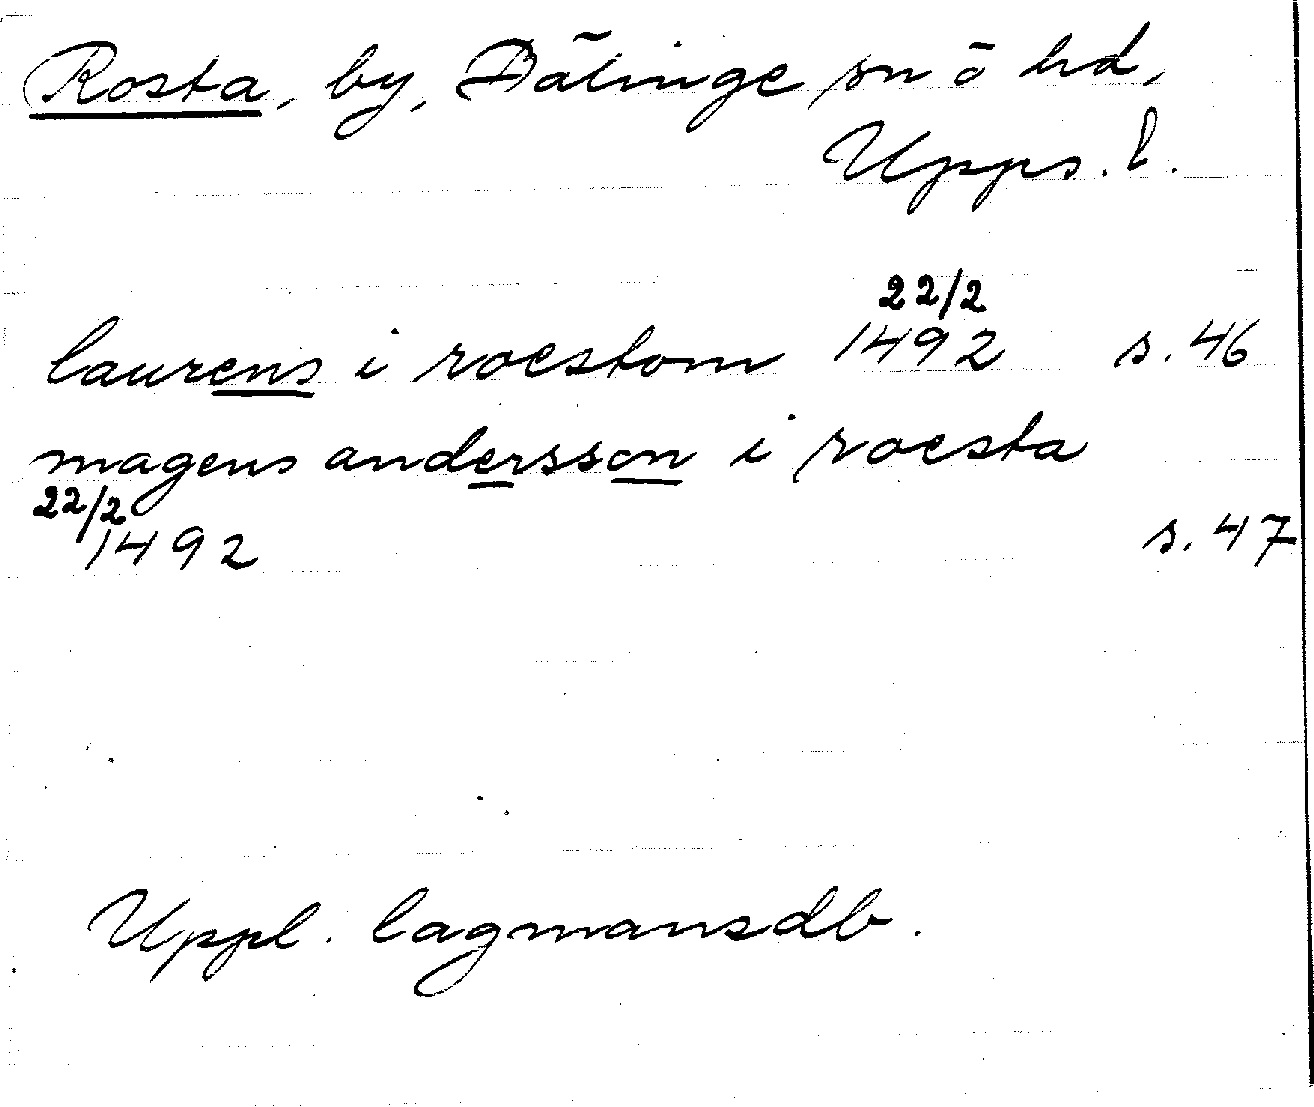 Rosta, by, Bälinge sn o hd,
Upps. l.
22/2
laurens i roestom 1492 s. 46
magens andersson i roesta
22/2
1492 s. 47
Uppl. lagmansdb.